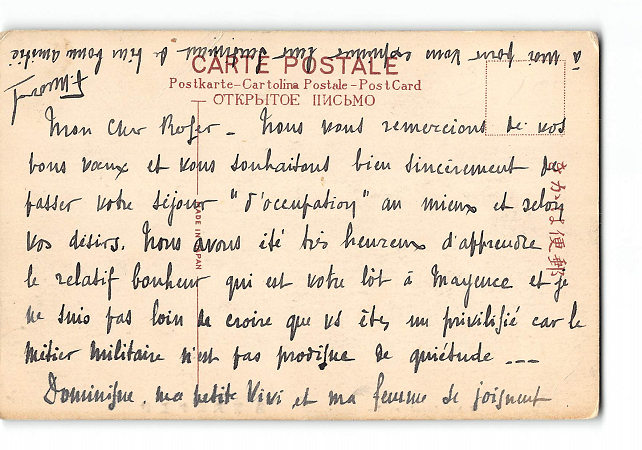 CARTE POSTALE
Postkarte-Cartolina Postale-PostCard
ОТКРЫТОЕ ПИСЬМО
Mon Cher Roger - Nous vous remercions de vos
bons vœux et vous souhaitons bien sincèrement de
passer votre séjour "d'occupation" au mieux et selon
vos désirs. Nous avons été très heureux d'apprendre
le relatif bonheur qui est votre lôt à Mayence et je
ne suis pas loin de croire que vs êtes un privilégié car le
métier militaire n'est pas prodigue de quiétude ---
Dominique, ma petite Vivi et ma femme se joignent
à moi pour vous exprimer leur sentiment de bien bonne amitié
MADE IN JAPAN
きかは便郵